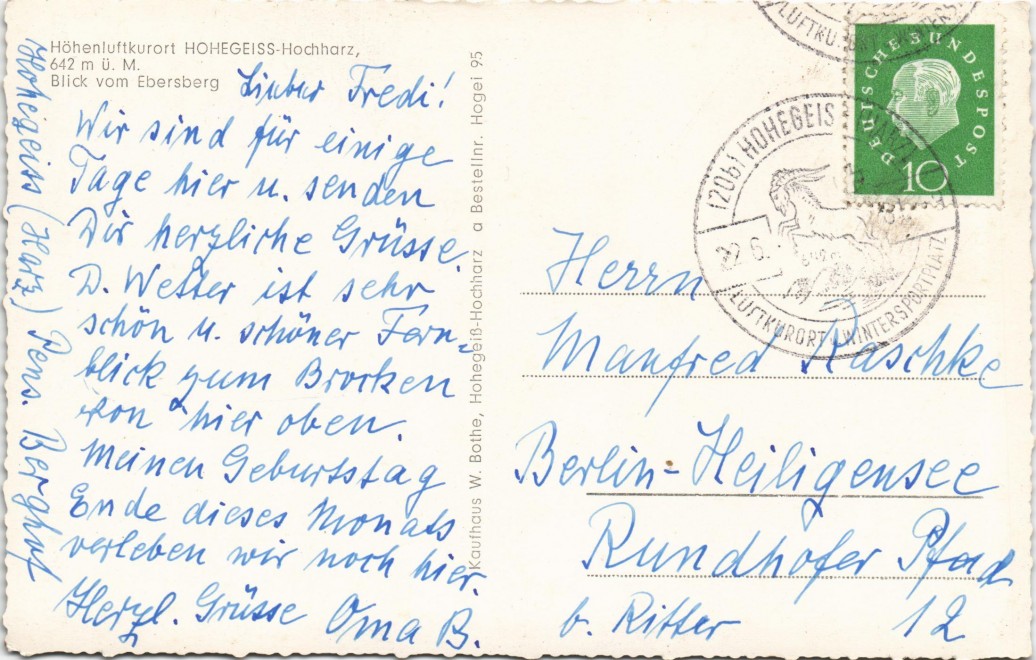 Höhenluftkurort HOHEGEISS-Hochharz,
642 m ü. M.
Blick vom Ebersberg
Lieber Fredi!
Wir sind für einige
Tage hier u. senden
Dir herzliche Grüsse.
D. Wetter ist sehr
schön u. schöner Fern-
blick zum Brocken
von hier oben.
Meinen Geburtstag
Ende dieses Monats
verleben wir noch hier.
Herzl. Grüsse Oma B.
Hohegeiss (Harz) Pens. Berghof
Kaufhaus W. Bothe, Hohegeiß-Hochharz a Bestellnr. Hogei 95
DEUTSCHE BUNDESPOST
10
(20b) HOHEGEISS
22.6.
LUFTKURORT u. WINTERSPORTPLATZ
Herrn
Manfred Raschke
Berlin-Heiligensee
Rundhofer Pfad
b. Ritter 12